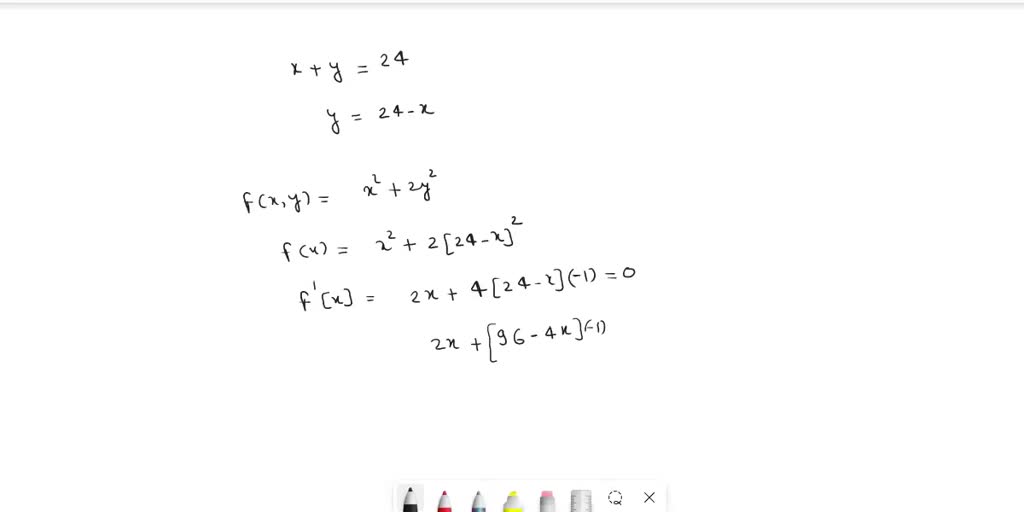 x + y = 24
y = 24 - x
f(x,y) = x² + 2y²
f(x) = x² + 2[24-x]²
f'[x] = 2x + 4[24-x](-1) = 0
2x + [96 - 4x](-1)